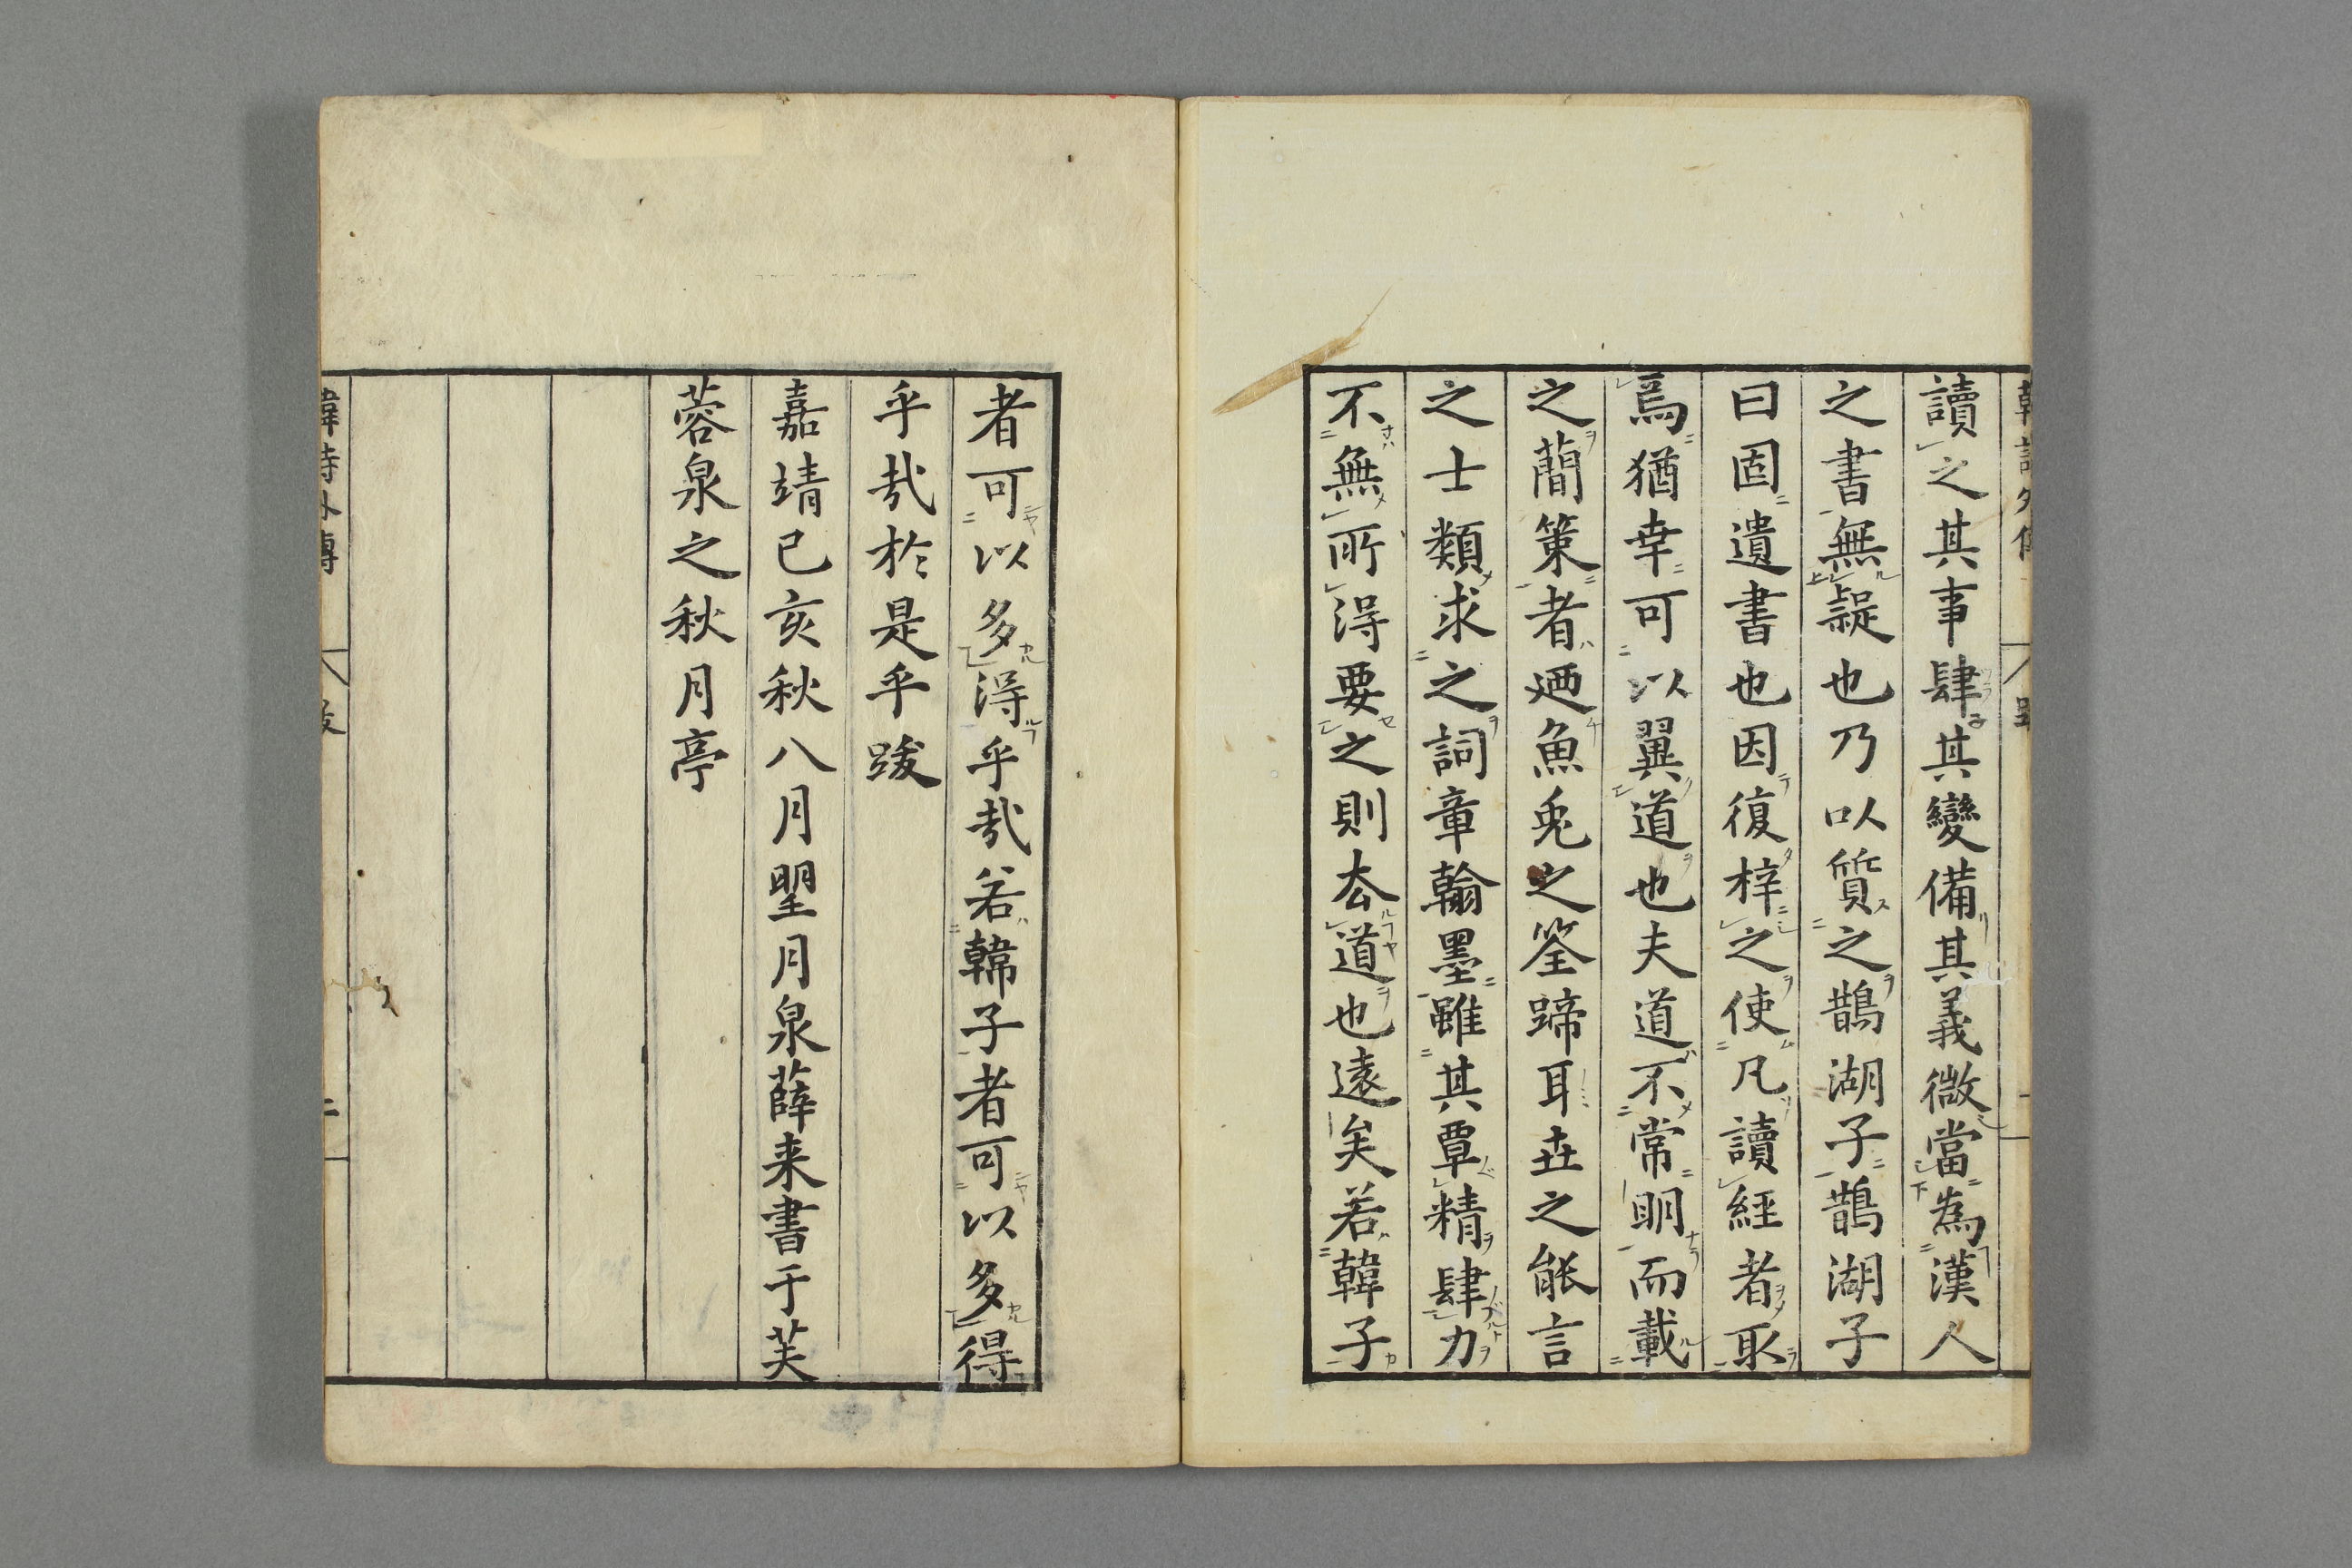 讀之其事肆其變備其義微當為漢人
之書無疑也乃以質之鵲湖子鵲湖子
曰固遺書也因復梓之使凡讀經者取
焉猶幸可以翼道也夫道不常明而載
之蕑策者廼魚兎之筌蹄耳丗之能言
之士類求之詞章翰墨雖其覃精肆力
不無所淂要之則去道也遠矣若韓子
者可以多淂乎哉若韓子者可以多得
乎哉於是乎跋
嘉靖己亥秋八月朢月泉薛来書于芙
蓉泉之秋月亭